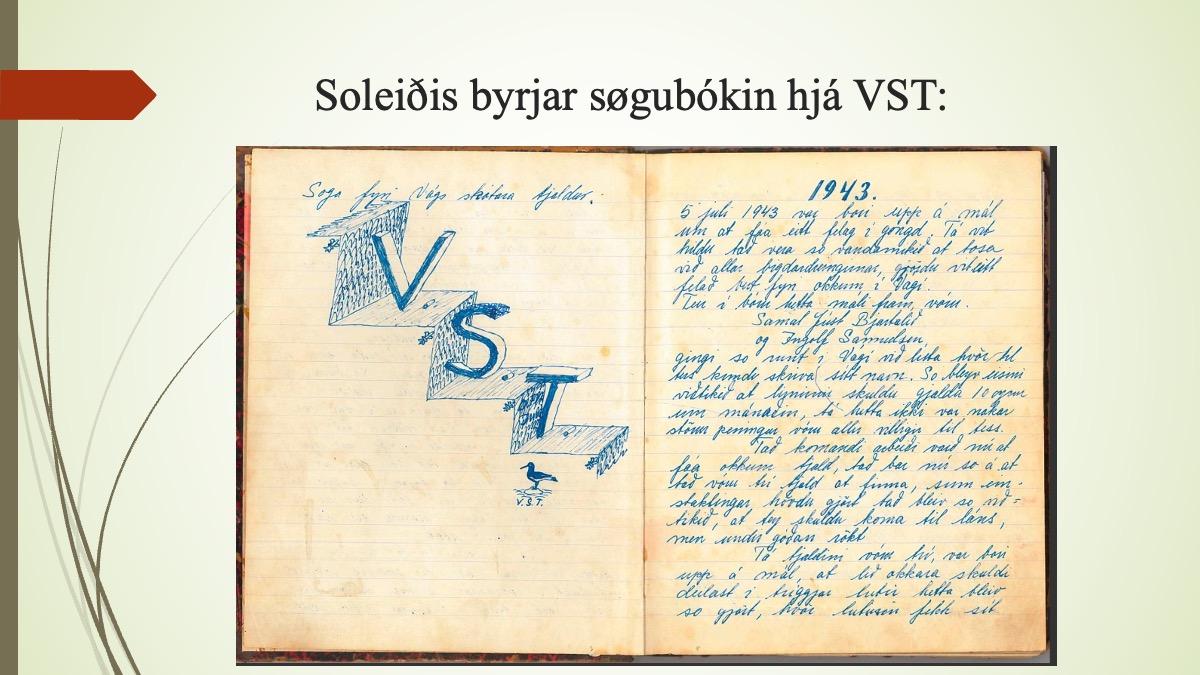 Soleiðis byrjar søgubókin hjá VST:
Soga fyri Vágs skótara tjaldur.
V
S
T
V.S.T.
1943.
5 juli 1943 var bori upp á mál
um at fáa eitt felag í gongd. Tá vit
hildu tað vera so vandamikið at tosa
við allar bygdardreingirnar, gjørdu vit eitt
felað bert fyri okkum í Vági.
Teir í bóru hetta máli fram, vóru.
Samal Just Bjartalíð
og Ingolf Samuelsen,
gingi so runt í Vági við lista hvør til
tess kundu skriva sítt navn. So bleyv
at limirnir skuldu gjalda 10 oyru
um mánaðin, tá hetta ikki var nakar
stórur peningur vóru allir villigir til tess.
Tað komandi arbeiði varð nú at
fáa okkum tjald, tað bar nú so á at
tað vóru trí tjald at finna, sum ein-
staklingar høvdu gjørt tað bleiv so við-
tikið, at tey skuldu koma til láns,
men undir góðari røkt
Tá tjaldini vóru trí, var bori
upp á mál, at lið okkara skuldi
deilast í tríggjar lutir hetta bleiv
so gjørt, hvør luturin fekk sít